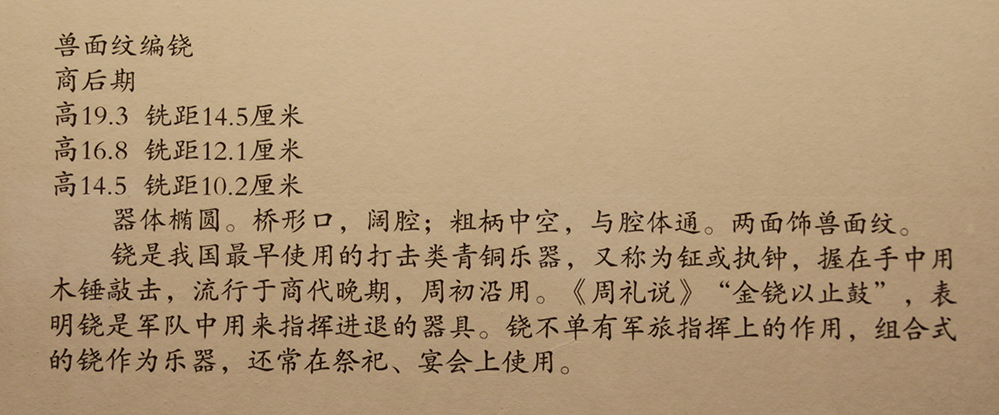 兽面纹编铙
商后期
高19.3 铣距14.5厘米
高16.8 铣距12.1厘米
高14.5 铣距10.2厘米
器体椭圆。桥形口，阔腔；粗柄中空，与腔体通。两面饰兽面纹。
铙是我国最早使用的打击类青铜乐器，又称为钲或执钟，握在手中用
木锤敲击，流行于商代晚期，周初沿用。《周礼说》“金铙以止鼓”，表
明铙是军队中用来指挥进退的器具。铙不单有军旅指挥上的作用，组合式
的铙作为乐器，还常在祭祀、宴会上使用。